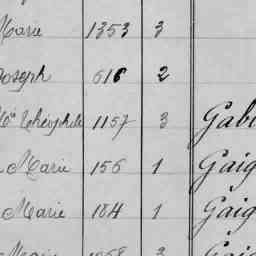 Marie 1353 3
Joseph 616 2
Mie Théophile 1157 3 Gab
Marie 156 1 Gaig
Marie 184 1 Gaig